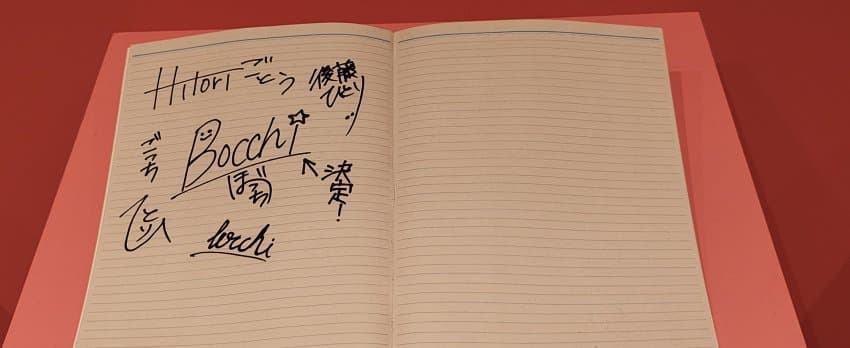 Hitori ごとう
後藤
ひとり
ごっち
Bocchi
ぼっち
決定!
ひとり
bocchi